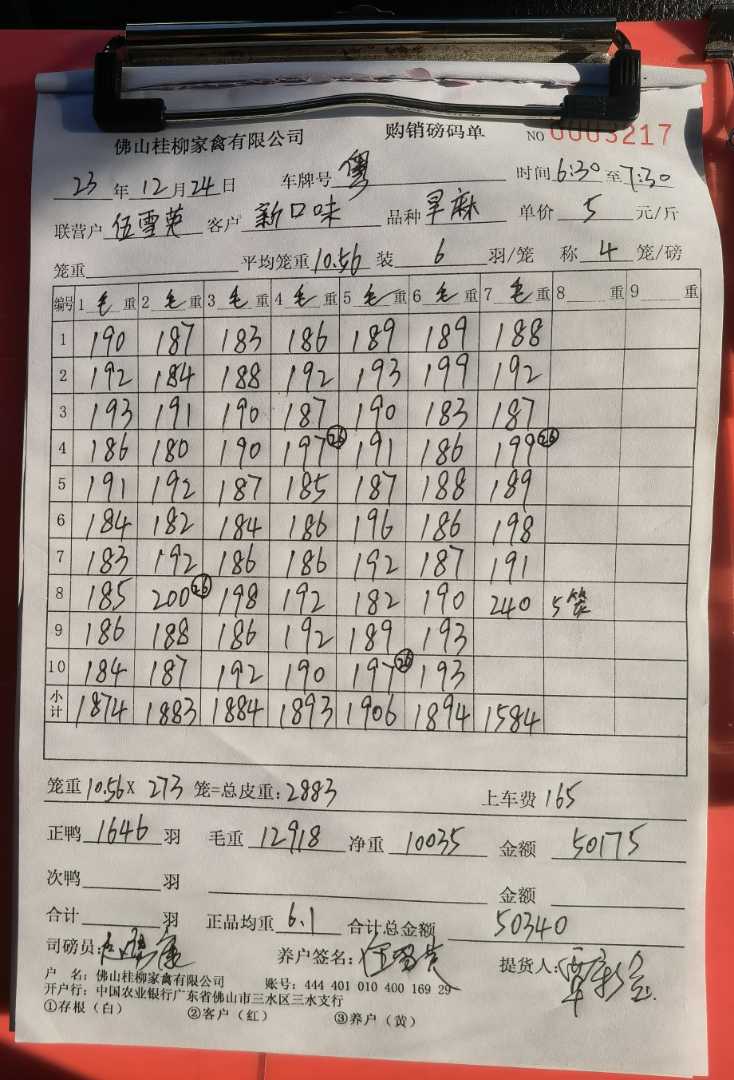 佛山桂柳家禽有限公司 购销磅码单 NO 0003217
23年12月24日 车牌号 粤 时间 6:30 至 7:30
联营户 伍雪英 客户 新口味 品种 旱麻 单价 5 元/斤
笼重 平均笼重 10.56 装 6 羽/笼 称 4 笼/磅
编号 1 毛 重 2 毛 重 3 毛 重 4 毛 重 5 毛 重 6 毛 重 7 毛 重 8 重 9 重
1 190 187 183 186 189 189 188
2 192 184 188 192 193 199 192
3 193 191 190 187 190 183 187
4 186 180 190 197 26 191 186 199 26
5 191 192 187 185 187 188 189
6 184 182 184 186 196 186 198
7 183 192 186 186 192 187 191
8 185 200 26 198 192 182 190 240 5笼
9 186 188 186 192 189 193
10 184 187 192 190 197 26 193
小计 1874 1883 1884 1893 1906 1894 1584
笼重 10.56 X 273 笼=总皮重: 2883 上车费 165
正鸭 1646 羽 毛重 12918 净重 10035 金额 50175
次鸭 羽 金额
合计 羽 正品均重 6.1 合计总金额 50340
司磅员: 养户签名: 提货人:
户 名: 佛山桂柳家禽有限公司 账号: 444 401 010 400 169 29
开户行: 中国农业银行广东省佛山市三水区三水支行
①存根(白) ②客户(红) ③养户(黄)